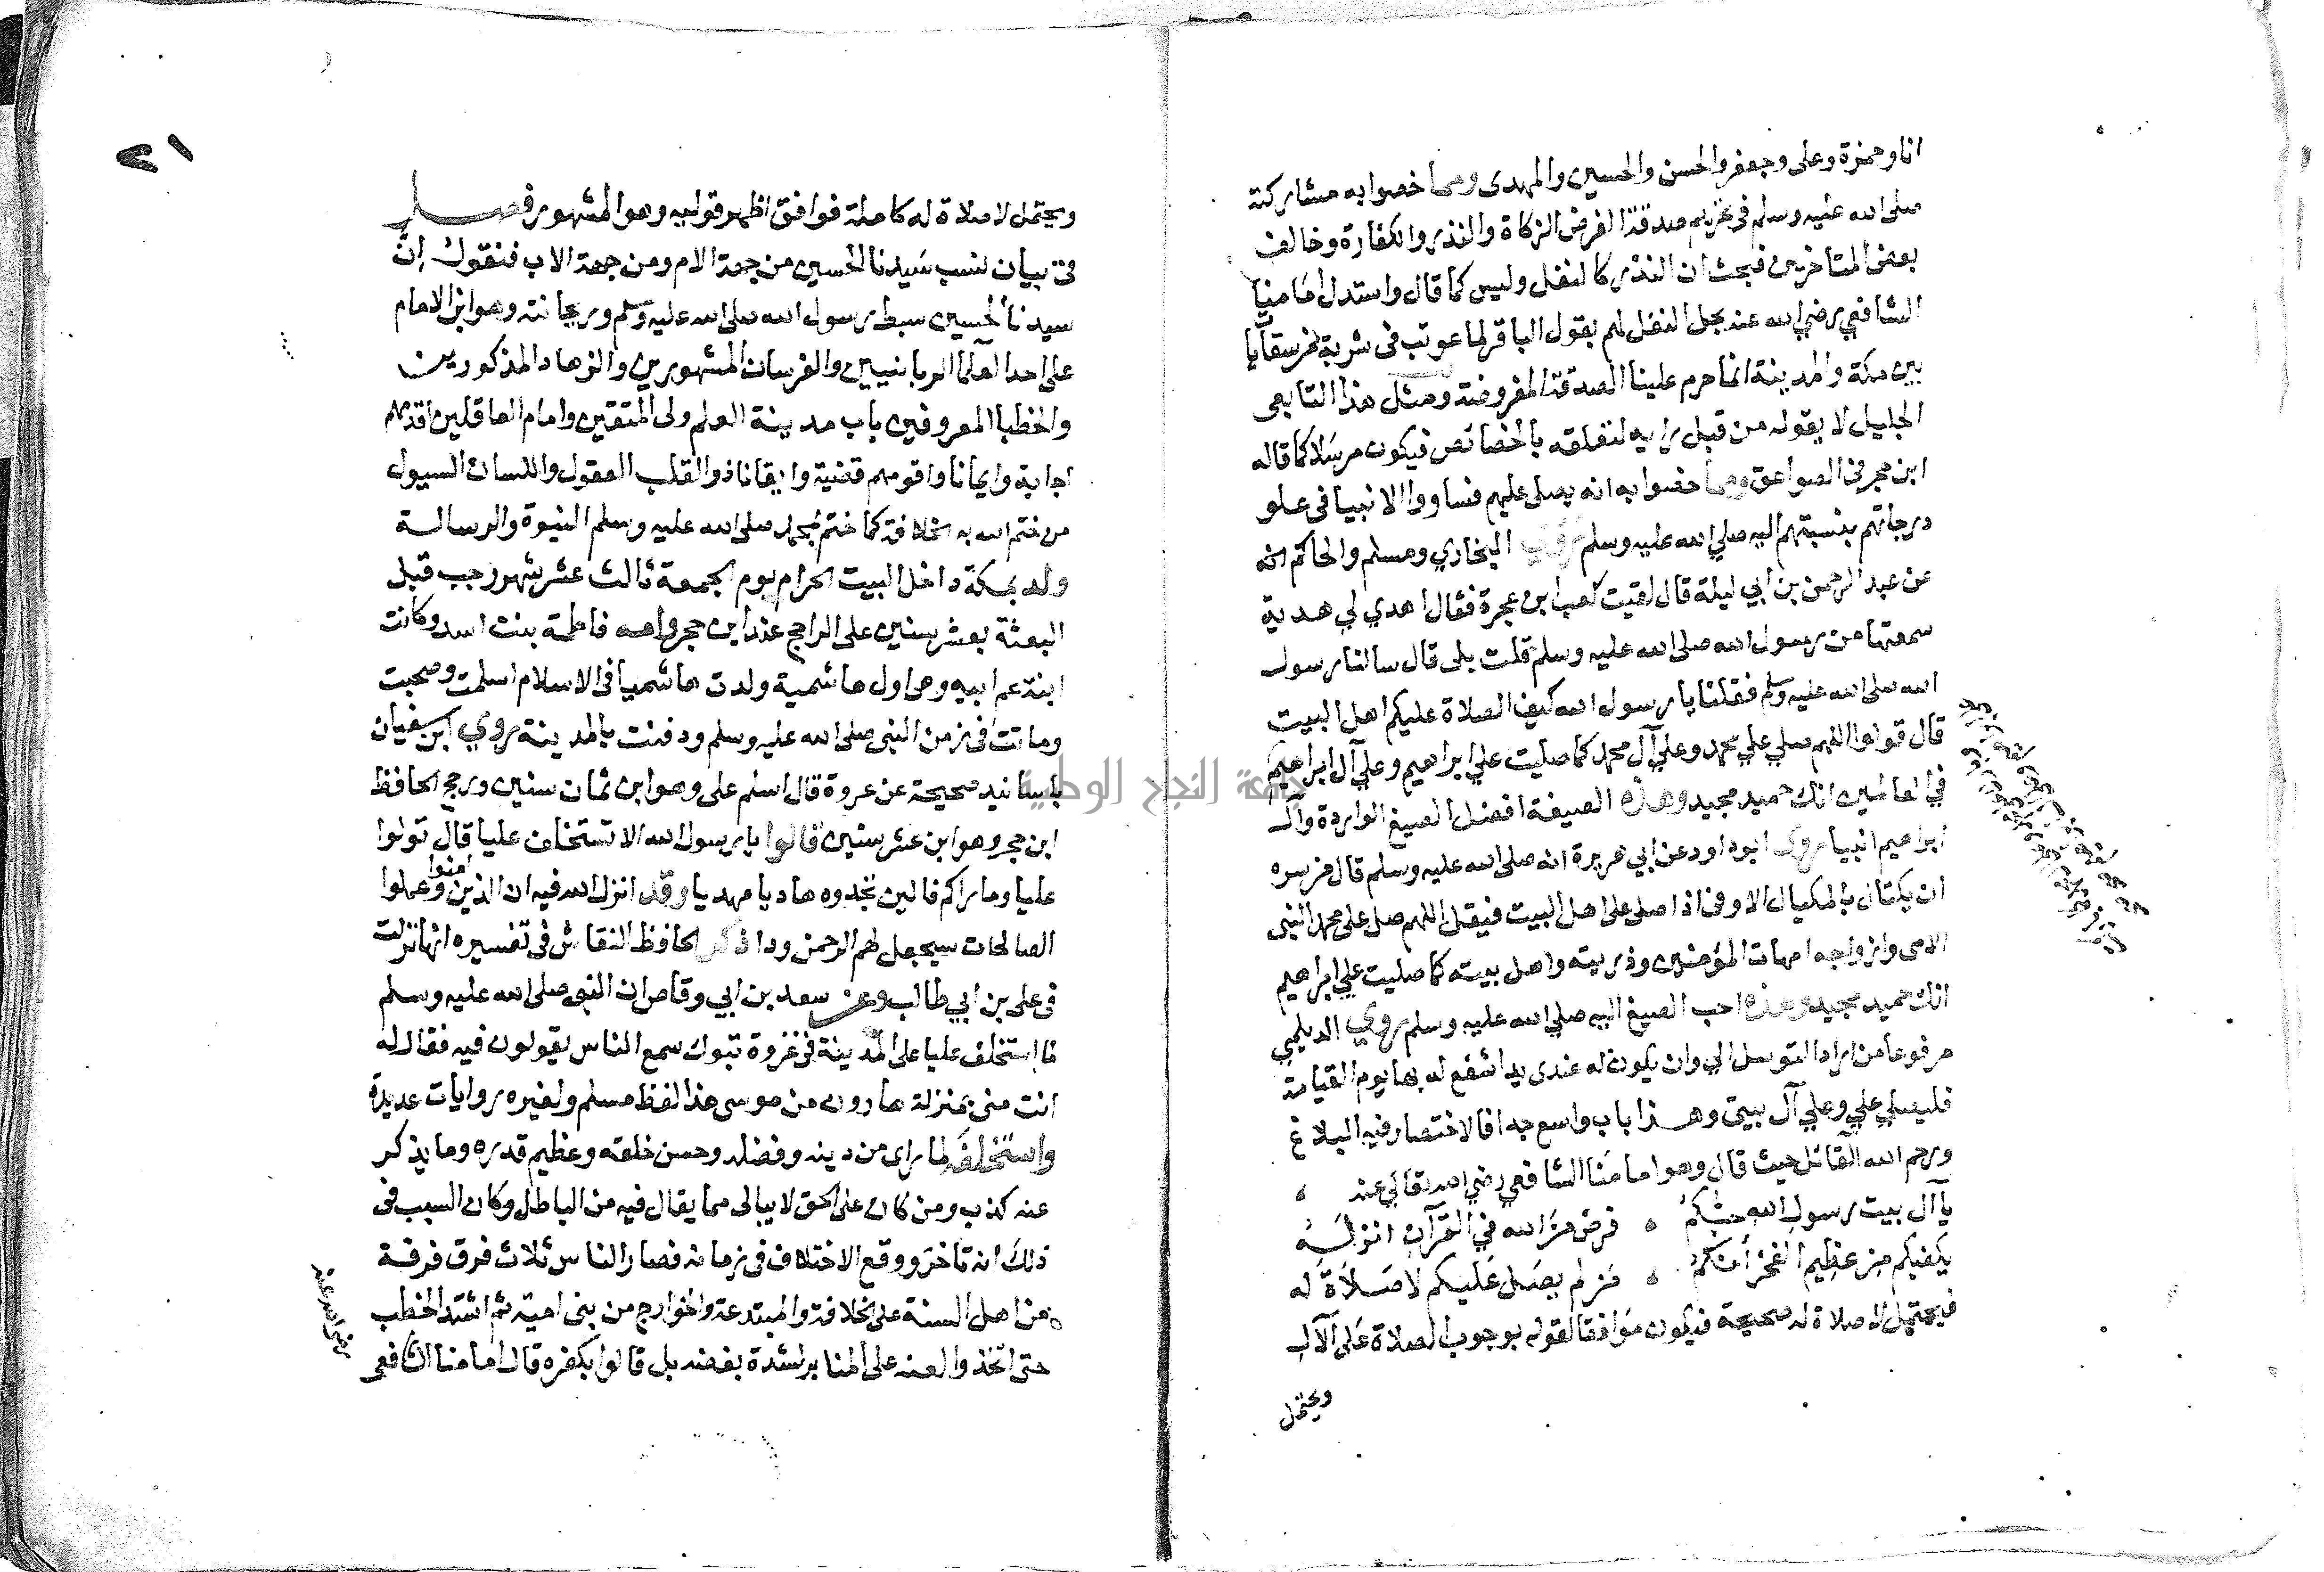 انا وحمزة وعلى وجعفر والحسن والحسين والمهدى ومما خصوا به مشاركته
صلى الله عليه وسلم فى تحريم صدقة الفرض الزكاة والنذر والكفارة وخالف
بعض المتاخرين فبحث ان النذر كالنفل وليس كما قال واستدل امامنا
الشافعي رضي الله عنه بحل النفل لهم بقول الباقر لما عوتب فى شربه من سقايا
بين مكة والمدينة انما حرم علينا الصدقة المفروضة ومثل هذا التابعى
الجليل لا يقوله من قبل رايه لتعلقه بالخصائص فيكون مرسلا كما قاله
ابن حجر فى الصواعق ومما خصوا به انه يصلى عليهم فساووا الانبيا فى علو
درجاتهم بنسبتهم اليه صلي الله عليه وسلم روي البخاري ومسلم والحاكم انه
عن عبد الرحمن بن ابي ليلة قال لقيت كعب ابن عجرة فقال اهدي لي هدية
سمعتها من رسول الله صلى الله عليه وسلم قلت بلى قال سالنا رسول
الله صلى الله عليه وسلم فقلنا يا رسول الله كيف الصلاة عليكم اهل البيت
قال قولوا اللهم صلي علي محمد وعلي آل محمد كما صليت علي ابراهيم وعلي آل ابراهيم
في العالمين انك حميد مجيد وهذه الصيغة افضل الصيغ الواردة وآل
ابراهيم انبيا وروى ابو داود عن ابي هريرة انه صلى الله عليه وسلم قال من سره
ان يكتال بالمكيال الاوفى اذا صلى على اهل البيت فليقل اللهم صل على محمد النبى
الامى وازواجه امهات المؤمنين وذريته واهل بيته كما صليت علي ابراهيم
انك حميد مجيد وهذه احب الصيغ اليه صلي الله عليه وسلم وروي الديلمي
مرفوعا من اراد التوسل الي وان يكون له عندى يد اشفع له بها يوم القيامة
فليصلي علي وعلي آل بيتى وهذا باب واسع جدا فالاختصار فيه البلاغ
ورحم الله القائل حيث قال وهو امامنا الشافعي رضي الله تعالي عنه
يا آل بيت رسول الله حبكم فرض من الله في القرآن انزله
يكفيكم من عظيم الفخر انكم من لم يصل عليكم لا صلاة له
فيحتمل لا صلاة له صحيحة فيكون موافقا لقوله بوجوب الصلاة على الآل
ويحتمل
٢١
ويحتمل لا صلاة له كاملة فوافق اظهر قوليه وهو المشهور فصل
فى بيان نسب سيدنا الحسين من جهة الام ومن جهة الاب فنقول ان
سيدنا الحسين سبط رسول الله صلى الله عليه وسلم وريحانته وهو ابن الامام
على احد العلما الربانيين والفرسان المشهورين والزهاد المذكورين
والخطبا المعروفين باب مدينة العلم ولى المتقين وامام العاقلين اقدمهم
اجابة وايمانا واقومهم قضية وايقانا ذو القلب العقول واللسان السيول
من ختم الله به الخلافة كما ختم بمحمد صلى الله عليه وسلم النبوة والرسالة
ولد بمكة داخل البيت الحرام يوم الجمعة ثالث عشر شهر رجب قبل
البعثة بعشر سنين على الراجح عند ابن حجر وامه فاطمة بنت اسد وكانت
ابنة عم ابيه وهى اول هاشمية ولدت هاشميا فى الاسلام اسلمت وصحبت
وماتت فى زمن النبى صلى الله عليه وسلم ودفنت بالمدينة وروي ابن سفيان
باسانيد صحيحة عن عروة قال اسلم على وهو ابن ثمان سنين ورجح الحافظ
ابن حجر وهو ابن عشر سنين قالوا يا رسول الله الا تستخلف عليا قال تولوا
عليا وما اراكم فاعلين تجدوه هاديا مهديا وقد انزل الله فيه ان الذين امنوا وعملوا
الصالحات سيجعل لهم الرحمن ودا ذكر الحافظ النقاش فى تفسيره انها نزلت
فى على بن ابي طالب وعن سعد بن ابي وقاص ان النبى صلى الله عليه وسلم
لما استخلف عليا على المدينة فى غزوة تبوك سمع الناس يقولون فيه فقال له
انت منى بمنزلة هارون من موسى هذا لفظ مسلم ولغيره روايات عديدة
واستخلفه لما راى من دينه وفضله وحسن خلقه وعظيم قدره وما يذكر
عنه كذب ومن كان على الحق لا يبالى مما يقال فيه من الباطل وكان السبب فى
ذلك انه تاخر ووقع الاختلاف فى زمانه فصار الناس ثلاث فرق فرقة
من اهل السنة على الخلافة والمبتدعة والخوارج من بنى امية ثم اشتد الخطب
حتى اتخذوا لعنه على المنابر لشدة بغضه بل قالوا بكفره قال امامنا الشافعى
رضى الله عنه
جامعة النجاح الوطنية